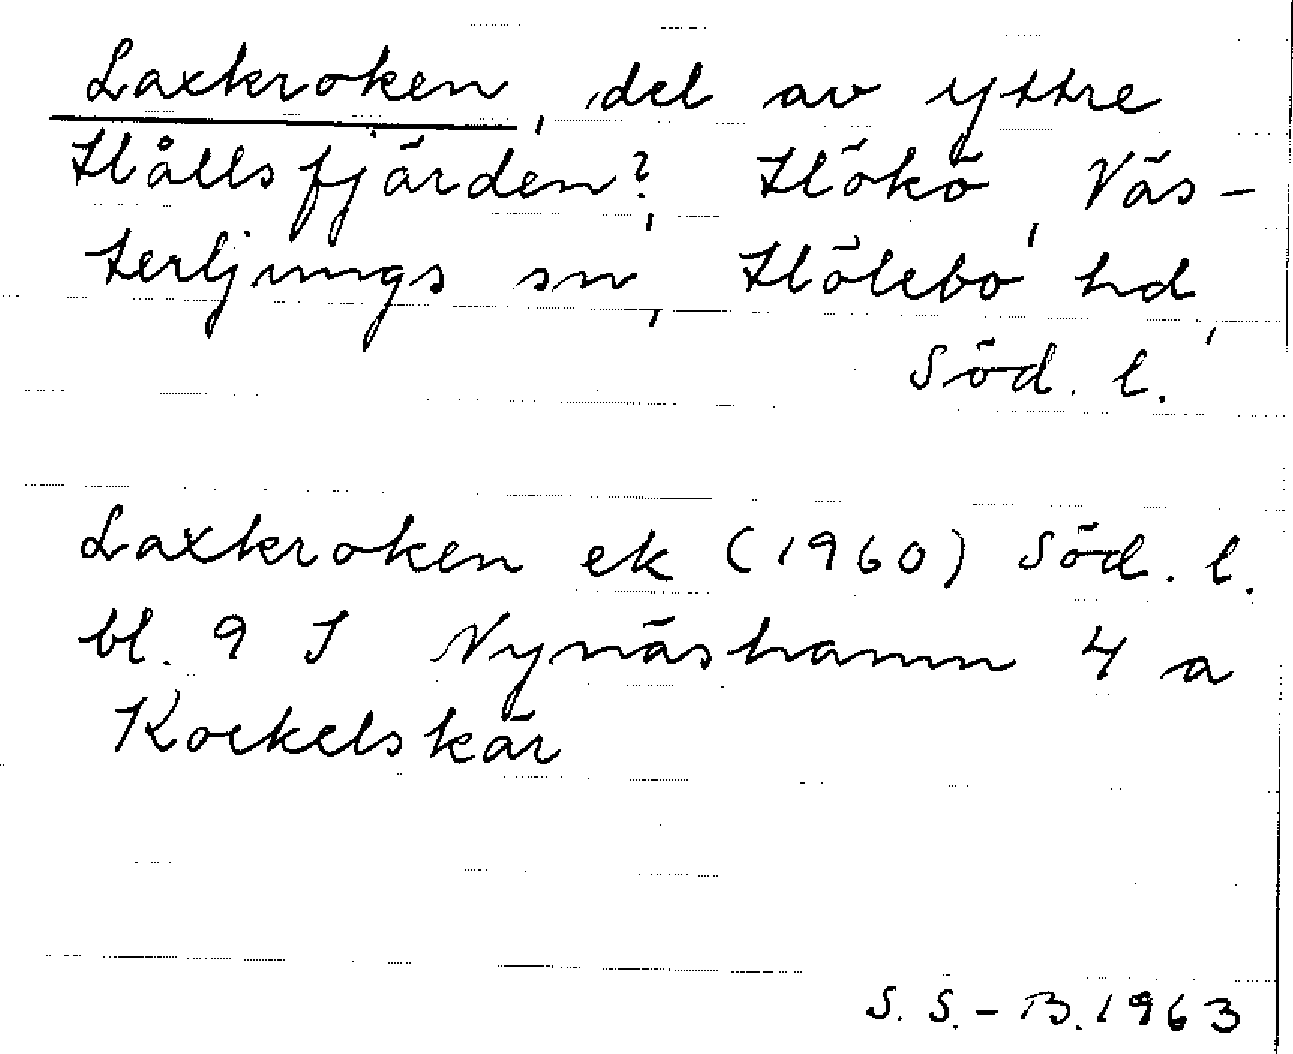 Laxkroken, del av yttre
Hållsfjärden?, Hökö, Väs-
terljungs sn, Hölebo hd,
Söd. l.
Laxkroken ek (1960) Söd. l.
bl. 9 I Nynäshamn 4 a
Kockelskär
S. S.-B. 1963